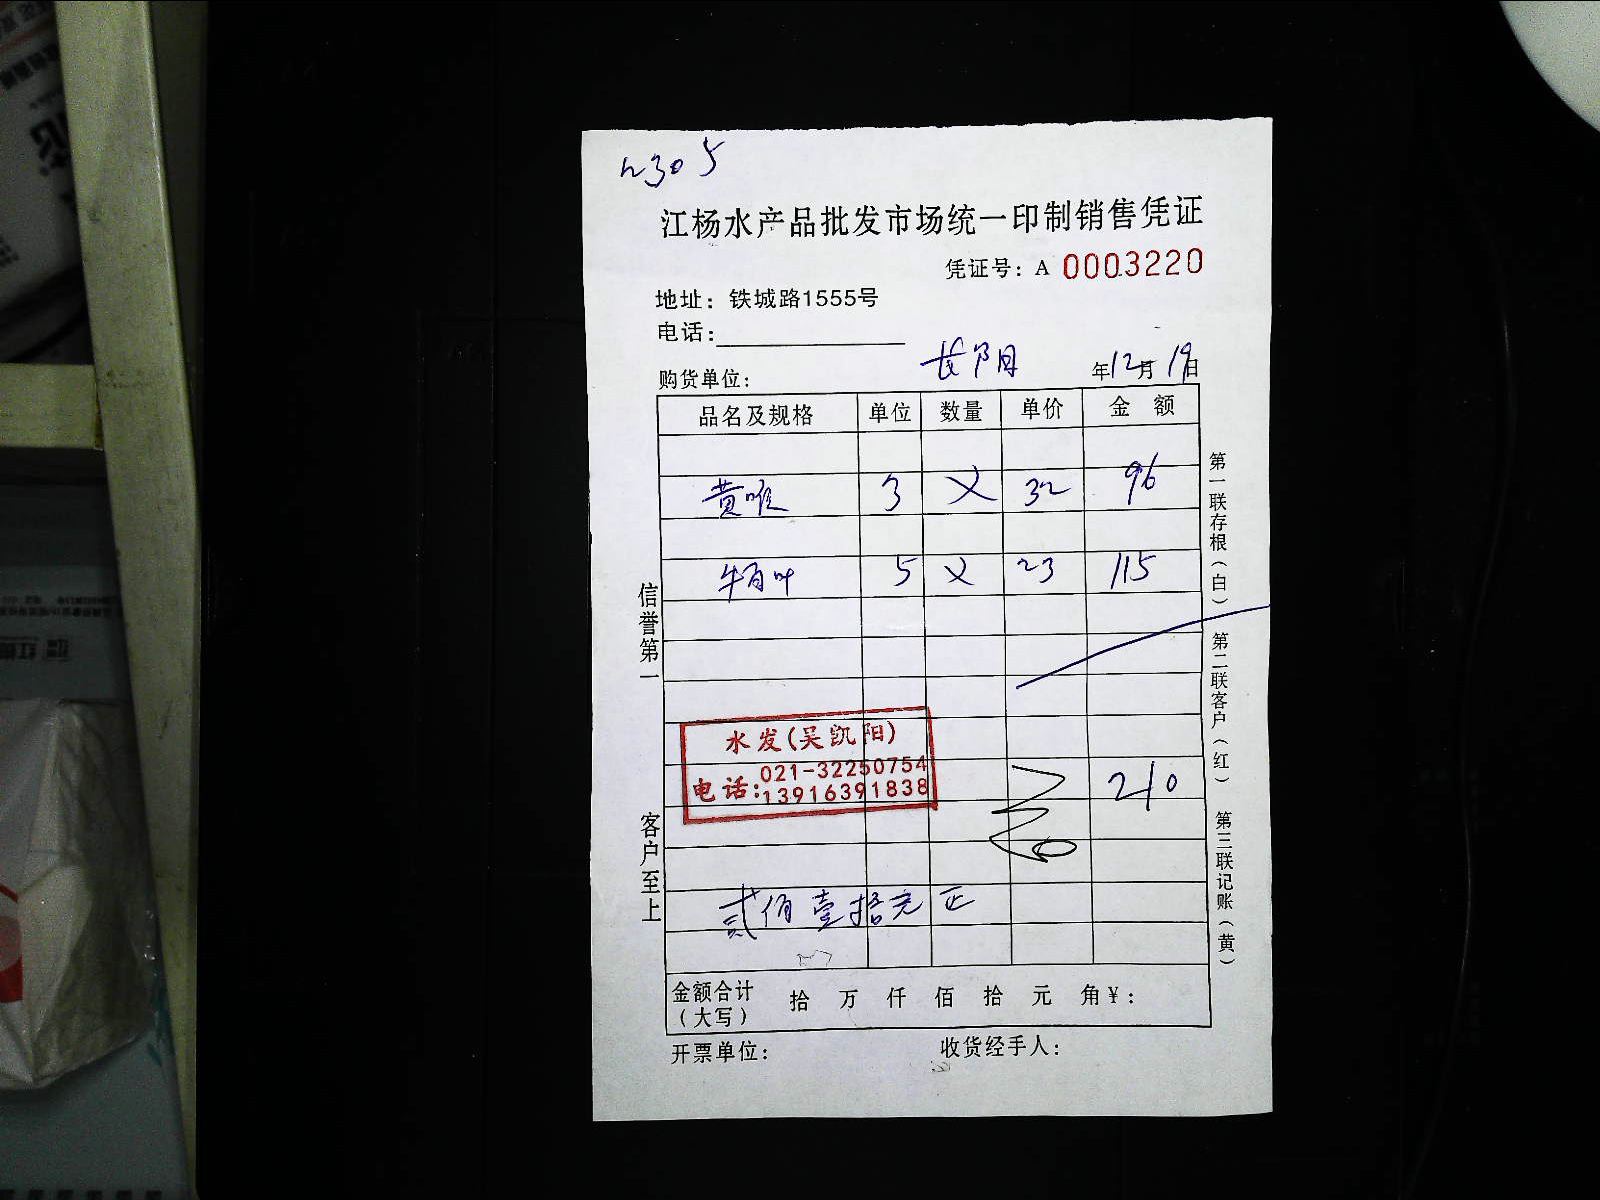 江杨水产品批发市场统一印制销售凭证
凭证号：A 0003220
地址：铁城路1555号
电话：
长阳 年12月19日
购货单位：
品名及规格 单位 数量 单价 金 额
黄喉 3 × 32 96
牛百叶 5 × 23 115
水发(吴凯阳)
电话：021-32250754
13916391838
210
贰佰壹拾元正
金额合计（大写） 拾 万 仟 佰 拾 元 角￥：
开票单位： 收货经手人：
信誉第一 客户至上
第一联存根（白） 第二联客户（红） 第三联记账（黄）